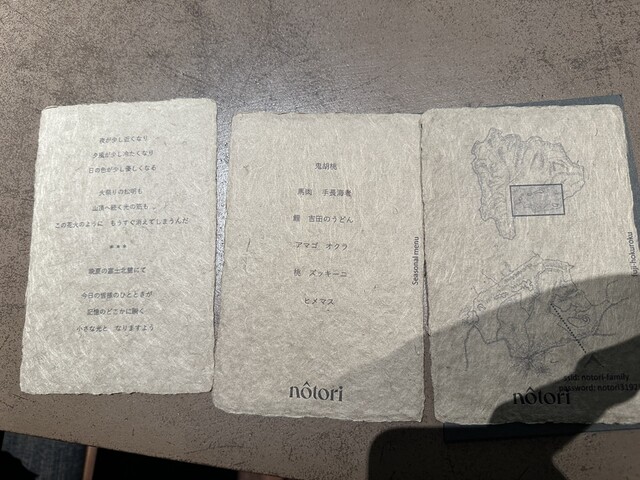 夜が少し近くなり
夕風が少し冷たくなり
日の色が少し優しくなる
火祭りの松明も
山頂へ続く光の筋も
この花火のように もうすぐ消えてしまうんだ
***
晩夏の富士北麓にて
今日の皆様のひとときが
記憶のどこかに瞬く
小さな光と なりますよう
鬼胡桃
馬肉 手長海老
吉田のうどん
アマゴ オクラ
桃 ズッキーニ
ヒメマス
Seasonal menu
nôtori
fuji-hokuroku
ssid: notori-family
nôtori